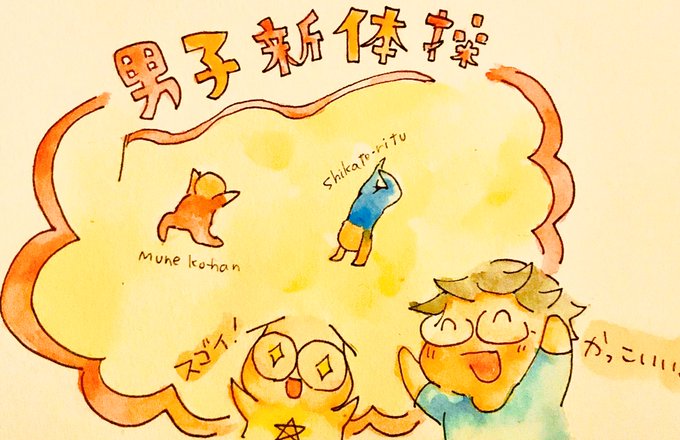 男子新体操
shikato-ritu
Mune ko-han
スゴイ!
かっこいい